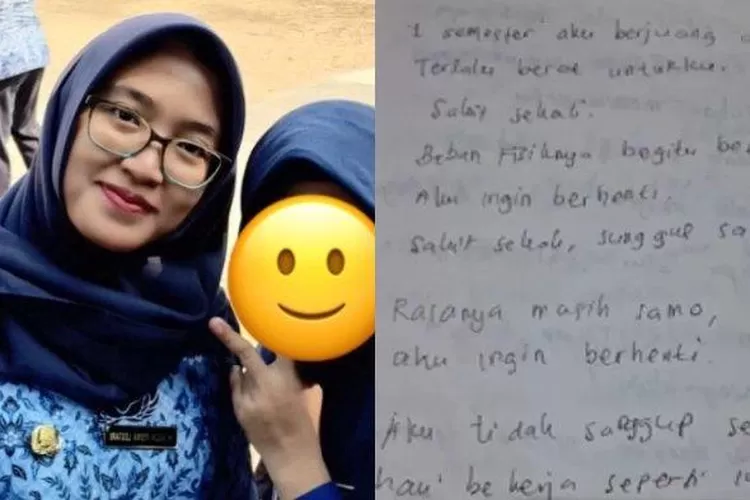 1 semester aku berjuang
Terlalu berat untukku.
Sakit sekali.
Beban Fisiknya begitu be
Aku ingin berhenti.
Sakit sekali, sunggup sa
Rasanya masih samo,
aku ingin berhenti.
Aku tidak sanggup se
hari bekerja seperti